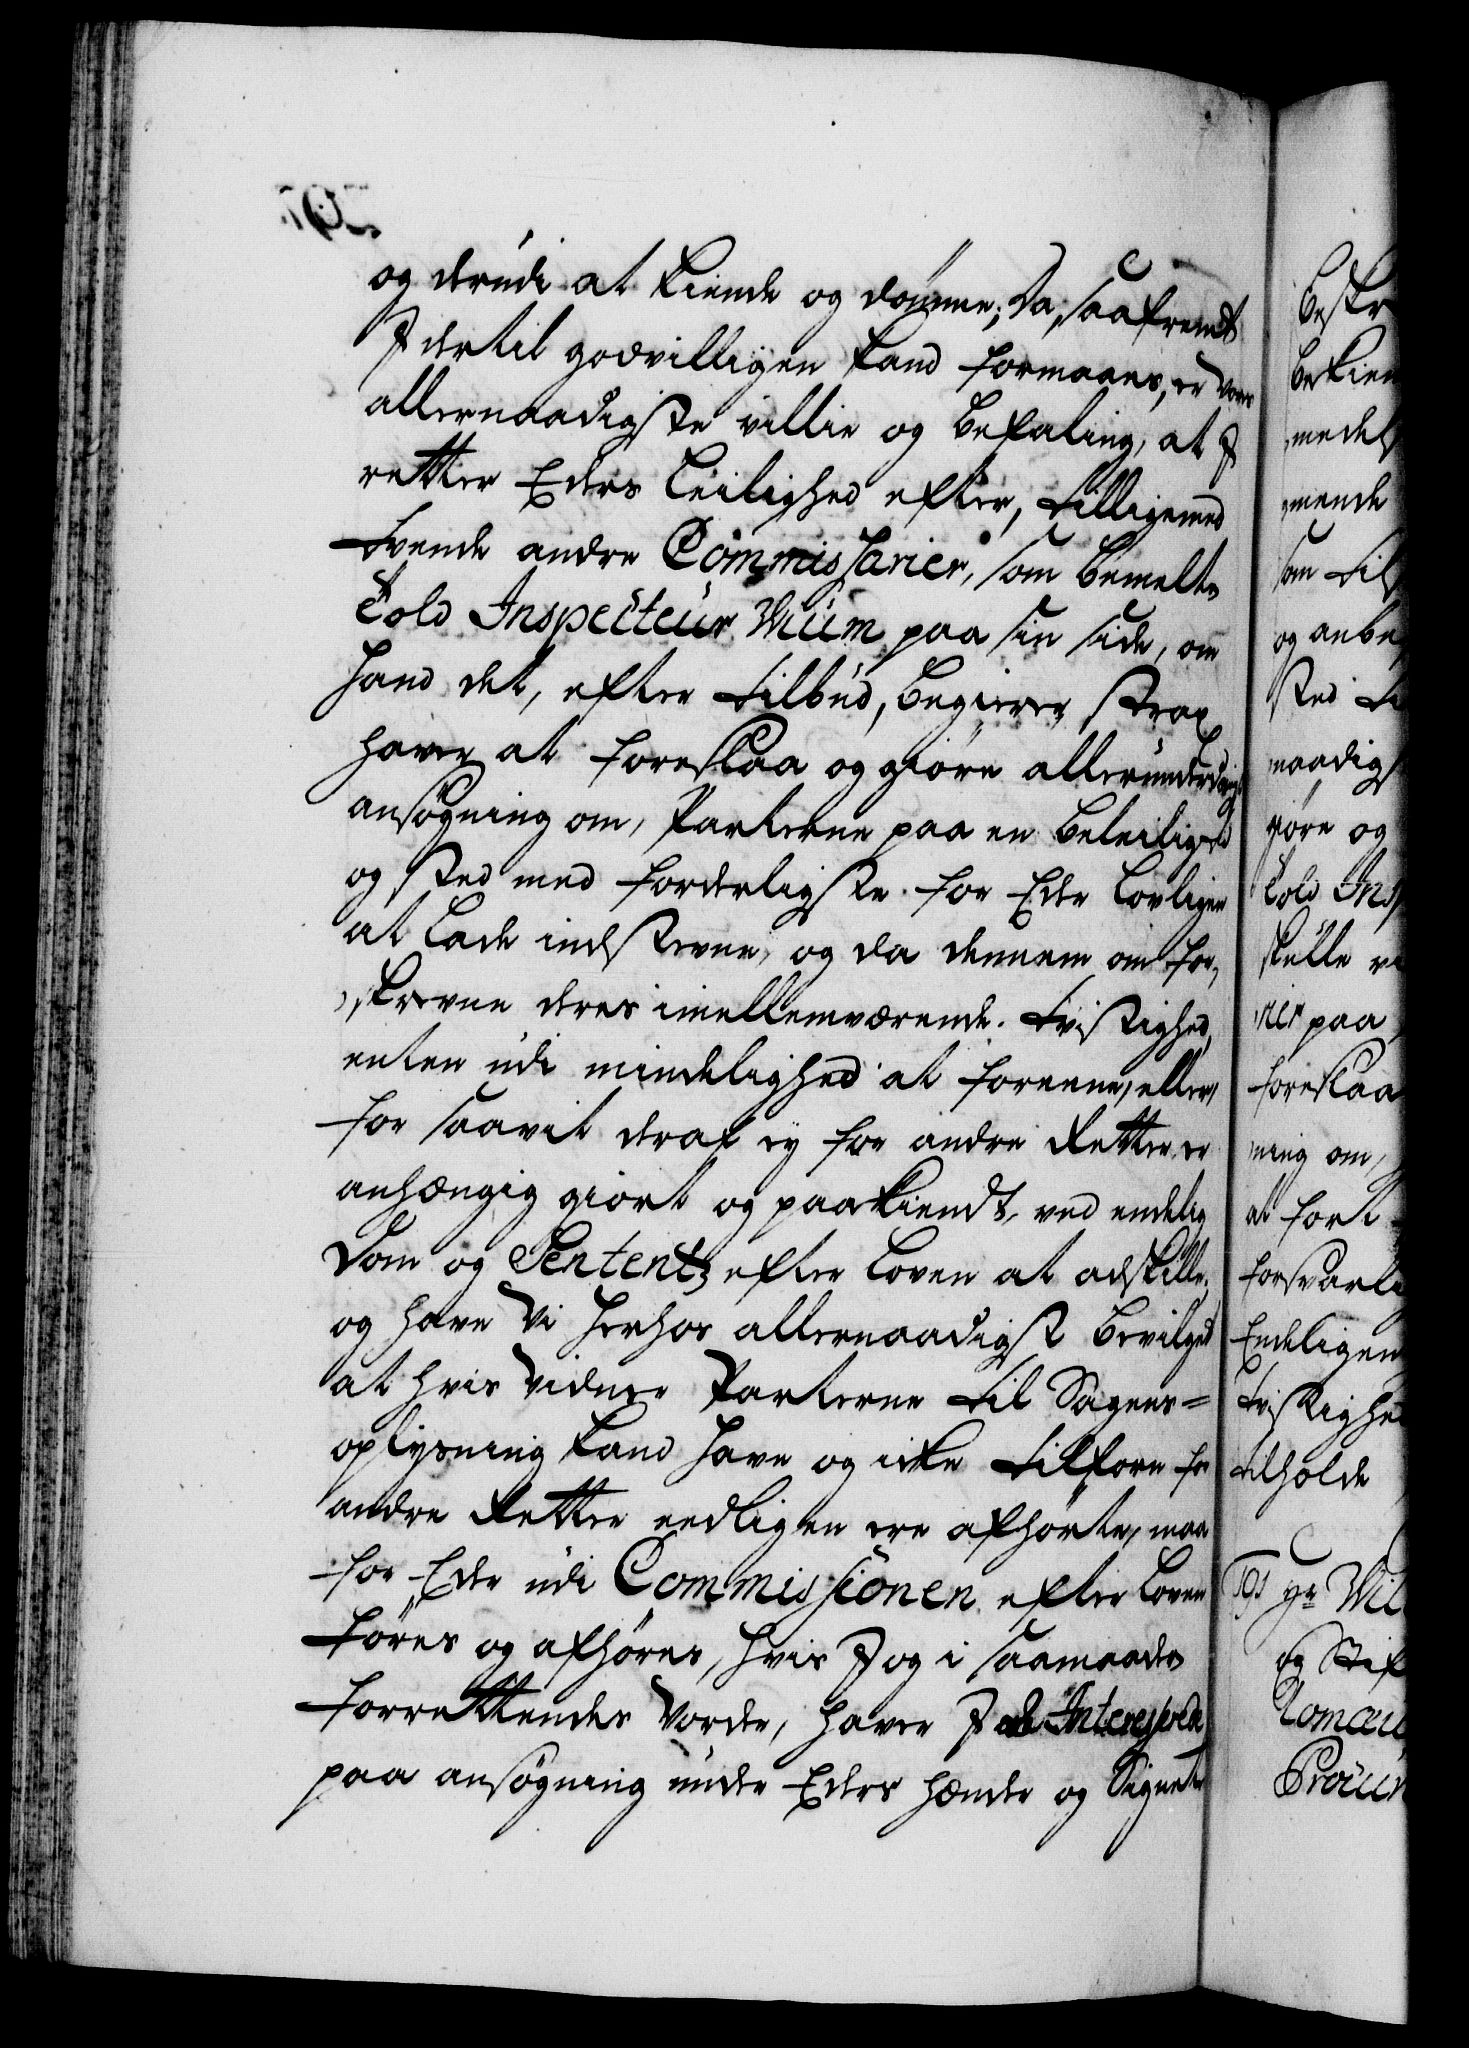 og derudi at kiende og dømme; Da, saafremt
I dertil godvilligen kand formaaes, er vores
allernaadigste villie og befaling, at I
retter Eders Leilighed efter, tilligemed
tvende andre Commissarier, som bemelte
Told Inspecteur Muum paa sin side, om
hand det, efter tilbud, begierer, strax
haver at foreslaa og giøre allerunderdanigst
ansøgning om, Parterne paa en beleilig tid
og sted med forderligste for Eder lovligen
at lade indstevne, og da dennem om for,
,skrevne deres imellemværende tvistighed,
enten udi mindelighed at foreene, eller,
for saavit deraf ey for andre Retter er
anhængig giort og paakiendt, ved endelig
Dom og Sententz efter Loven at adskille,
og have Vi herhos allernaadigst bevilget
at hvis Vidner Parterne til Sagens=
oplysning kand have og icke tilforn for
andre Retter eedligen ere afhørte, maa
for Eder udi Commissionen efter Loven
føres og afhøres, hvis I og i saamaade
forrettendes vorder, haver I de Interesserede
paa ansøgning under Eders hænder og Signeter
beskr
bekien
medel
mende
som til
og anbe
sted
naadigs
giøre og
Told Ins
skulle
rier paa
foreslaa
ning om,
at fort
forsvarli
Endeligen
tvistighe
tilholde
og Stif